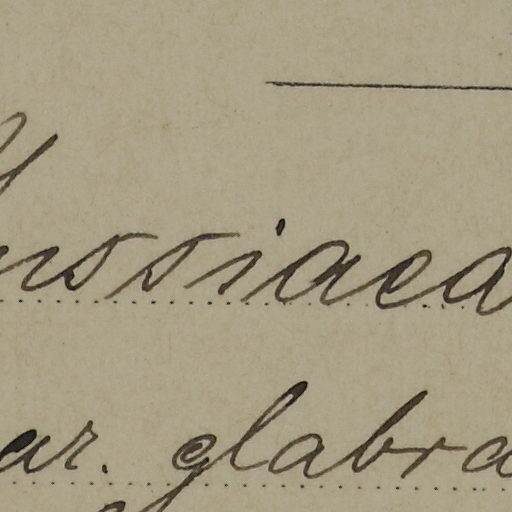 ussiaea
ar. glabra